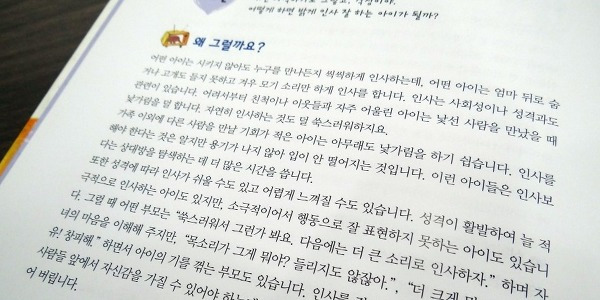 어떻게 하면 밝게 인사 잘 하는 아이가 될까?
왜 그럴까요?
어떤 아이는 시키지 않아도 누구를 만나든지 씩씩하게 인사하는데, 어떤 아이는 엄마 뒤로 숨
거나 고개도 들지 못하고 겨우 모기 소리만 하게 인사를 합니다. 인사는 사회성이나 성격과도
관련이 있습니다. 어려서부터 친척이나 이웃들과 자주 어울린 아이는 낯선 사람을 만났을 때
낯가림을 덜 합니다. 자연히 인사하는 것도 덜 쑥스러워하지요.
가족 이외에 다른 사람을 만날 기회가 적은 아이는 아무래도 낯가림을 하기 쉽습니다. 인사를
해야 한다는 것은 알지만 용기가 나지 않아 입이 안 떨어지는 것입니다. 이런 아이들은 인사보
다는 상대방을 탐색하는 데 더 많은 시간을 씁니다.
또한 성격에 따라 인사가 쉬울 수도 있고 어렵게 느껴질 수도 있습니다. 성격이 활발하여 늘 적
극적으로 인사하는 아이도 있지만, 소극적이어서 행동으로 잘 표현하지 못하는 아이도 있습니
다. 그럴 때 어떤 부모는 “쑥스러워서 그런가 봐요. 다음에는 더 큰 소리로 인사하자.” 하며 자
녀의 마음을 이해해 주지만, “목소리가 그게 뭐야? 들리지도 않잖아.”, “더 크게
유! 창피해.” 하면서 아이의 기를 꺾는 부모도 있습니다. 인사를
사람들 앞에서 자신감을 가질 수 있어야 하는
어 버립니다.